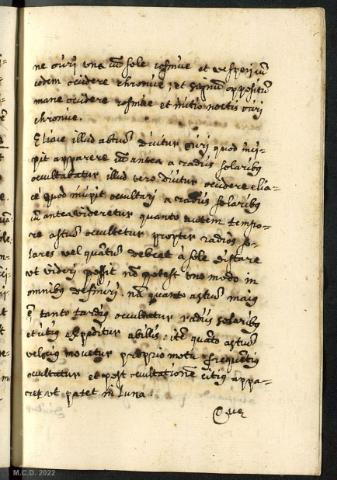 ne oriri una cū sole cosmice et vesperi cū
eodem occidere chronice; et signum oppositū
mane occidere cosmice et initio noctis oriri
chronice.
Eliace illud astrum dicitur oriri quod inci-
pit apparere cū antea a radiis solaribꝰ
occultabatur illud vero dicitur occidere elia-
cè quod incipit occultari a radiis solaribꝰ
cū antea videretur quanto autem tempo-
re astrum occultetur propter radios so-
lares vel quātum debeat à sole distare
ut videri possit nō potest uno modo in
omnibꝰ definiri. nā quanto astrum maius
ē tanto tardiꝰ occultatur radiis solaribꝰ
et citiꝰ expeditur ab illis: itē quāto astrum
velociꝰ movetur proprio motu frequentiꝰ
occultatur et post occultationē citiꝰ appa-
ret ut patet in luna.
Que
M.C.D. 2022